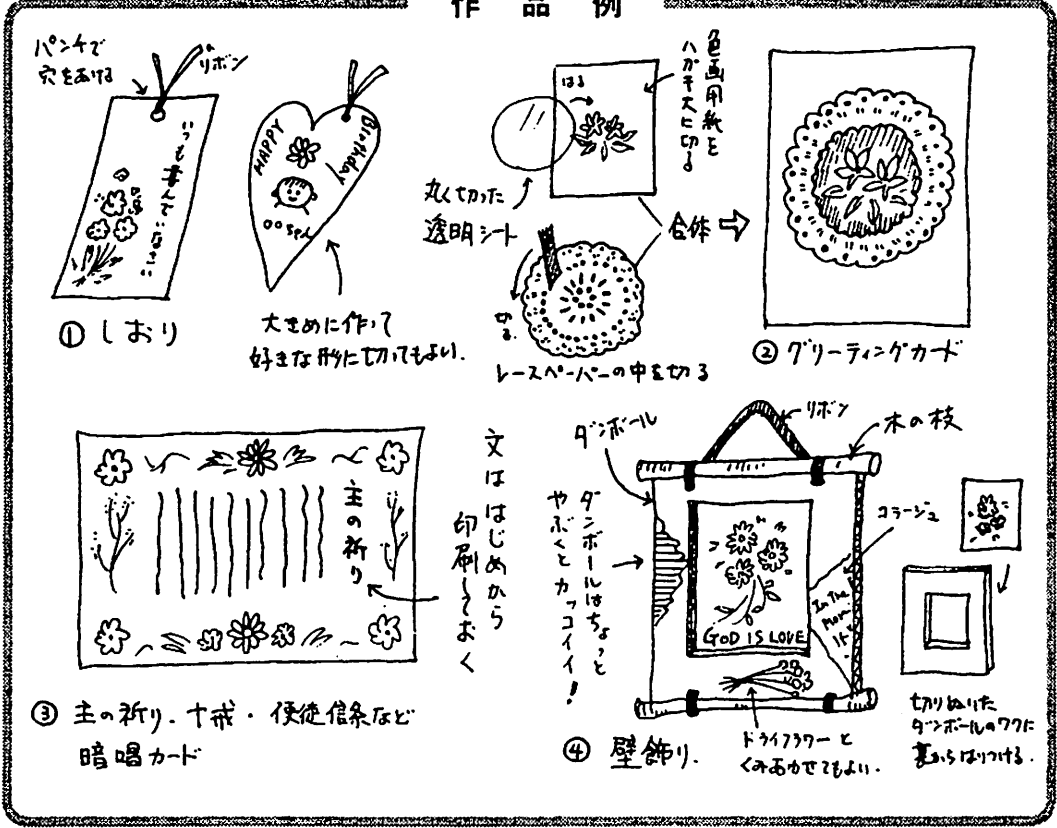 作品例
パンチで
穴をあける
リボン
いつも喜んでいなさい
HAPPY
Birthday
○○ちゃん
① しおり
大きめに作って
好きな形に切ってもよい.
はる
色画用紙を
ハガキ大に切る
丸く切った
透明シート
切る.
レースペーパーの中を切る
合体
② グリーティングカード
主の祈り
文ははじめから
印刷しておく
③ 主の祈り.十戒・使徒信条など
暗唱カード
ダンボール
リボン
木の枝
ダンボールはちょっと
やぶくとカッコイイ!
コラージュ
GOD IS LOVE
In The
④ 壁飾り.
ドライフラワーと
くみあわせてもよい.
切りぬいた
ダンボールのワクに
裏からはりつける.